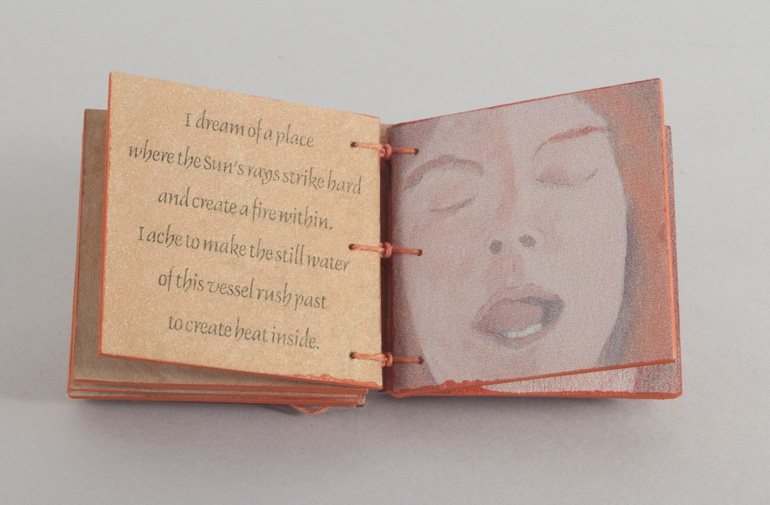 I dream of a place
where the Sun's rays strike hard
and create a fire within.
I ache to make the still water
of this vessel rush past
to create heat inside.